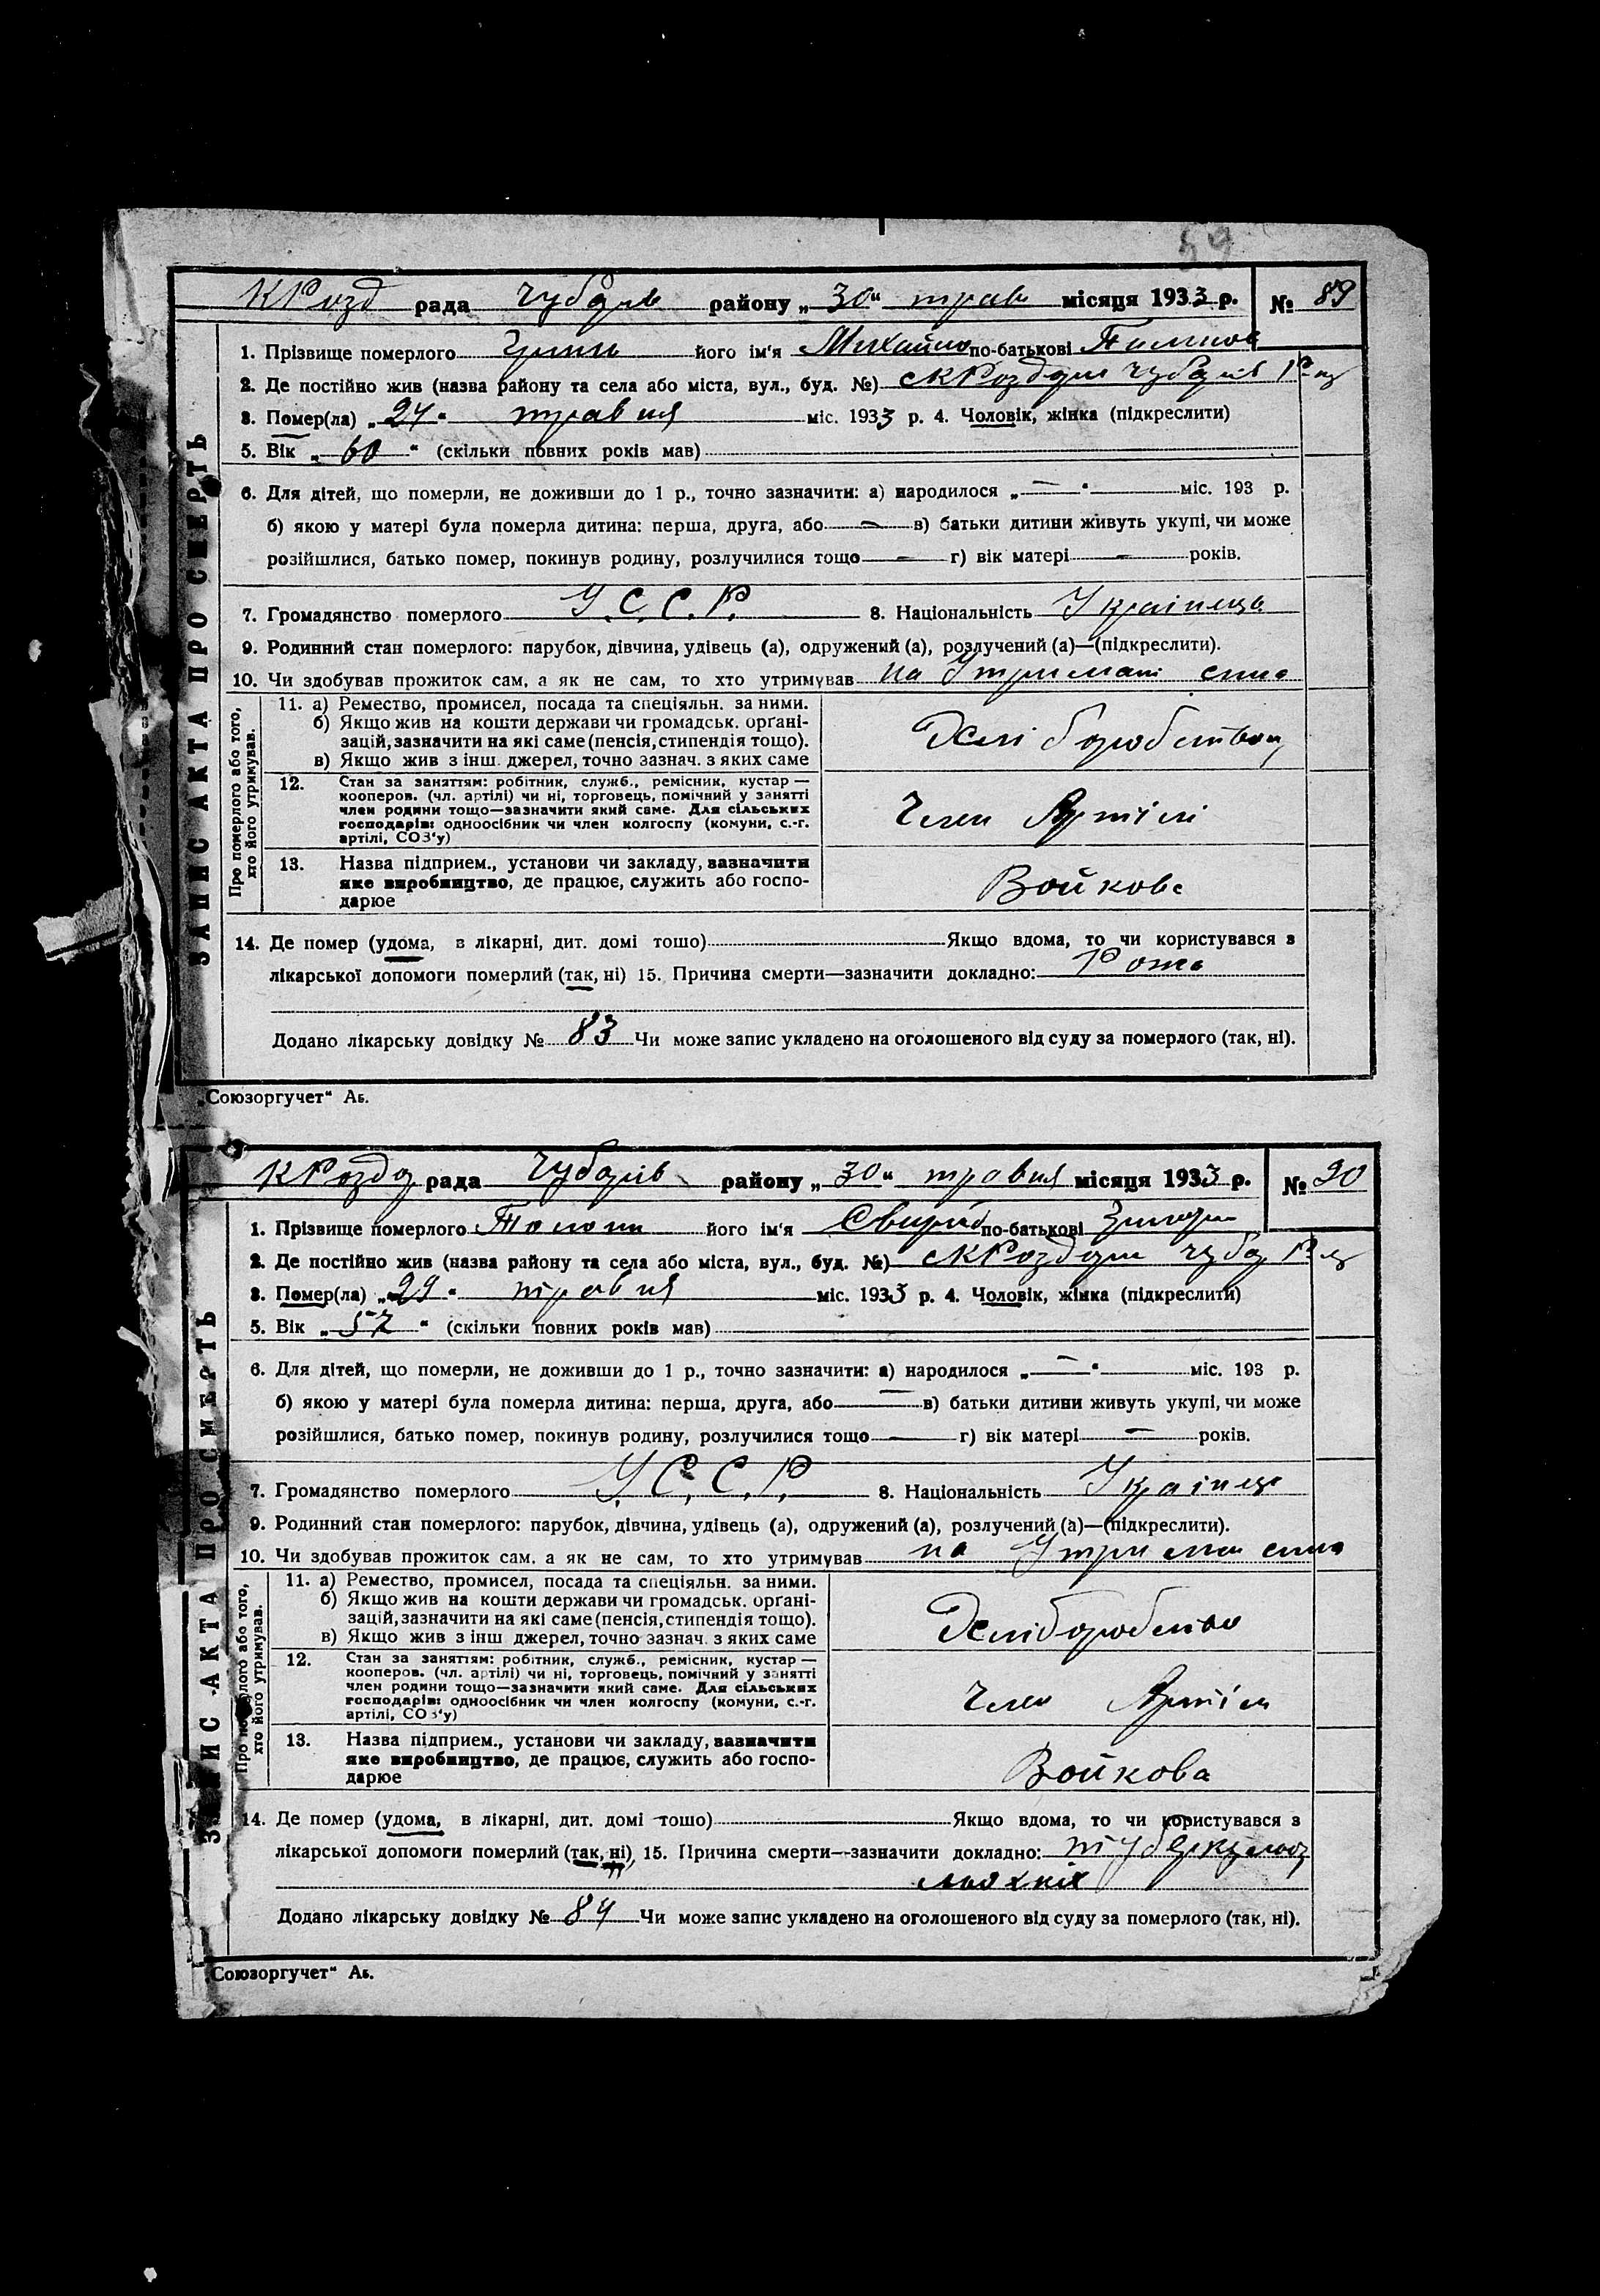 59
КРозд рада Чубарів району „30“ трав місяця 1933 р. № 89
1. Прізвище померлого його ім'я Михайло по-батькові
2. Де постійно жив (назва району та села або міста, вул., буд. №)
3. Помер(ла) „24“ травня міс. 1933 р. 4. Чоловік, жінка (підкреслити)
5. Вік „60“ (скільки повних років мав)
6. Для дітей, що померли, не доживши до 1 р., точно зазначити: а) народилося „—“ міс. 193 р.
б) якою у матері була померла дитина: перша, друга, або — в) батьки дитини живуть укупі, чи може
розійшлися, батько помер, покинув родину, розлучилися тощо — г) вік матері — років.
7. Громадянство померлого У.С.С.Р. 8. Національність Українець
9. Родинний стан померлого: парубок, дівчина, удівець (а), одружений (а), розлучений (а)—(підкреслити).
10. Чи здобував прожиток сам, а як не сам, то хто утримував на Утримані сина
ЗАПИС АКТА ПРО СМЕРТЬ
Про померлого або того,
хто його утримував.
11. а) Ремество, промисел, посада та спеціяльн. за ними.
б) Якщо жив на кошти держави чи громадськ. органі-
зацій, зазначити на які саме (пенсія, стипендія тощо).
в) Якщо жив з інш. джерел, точно зазнач. з яких саме
12. Стан за заняттям: робітник, служб., ремісник, кустар —
кооперов. (чл. артілі) чи ні, торговець, помічний у занятті
член родини тощо—зазначити який саме. Для сільських
господарів: одноосібник чи член колгоспу (комуни, с.-г.
артілі, СОЗ'у)
Член Артілі
13. Назва підприєм., установи чи закладу, зазначити
яке виробництво, де працює, служить або госпо-
дарює
Войкова
14. Де помер (удома, в лікарні, дит. домі тошо) Якщо вдома, то чи користувався з
лікарської допомоги померлий (так, ні) 15. Причина смерти—зазначити докладно: Рожа
Додано лікарську довідку № 83 Чи може запис укладено на оголошеного від суду за померлого (так, ні).
„Союзоргучет“ Аб.
КРозда рада Чубарів району „30“ травня місяця 1933 р. № 90
1. Прізвище померлого його ім'я Свирид по-батькові
2. Де постійно жив (назва району та села або міста, вул., буд. №)
3. Помер(ла) „29“ травня міс. 1933 р. 4. Чоловік, жінка (підкреслити)
5. Вік „57“ (скільки повних років мав)
6. Для дітей, що померли, не доживши до 1 р., точно зазначити: а) народилося „—“ міс. 193 р.
б) якою у матері була померла дитина: перша, друга, або — в) батьки дитини живуть укупі, чи може
розійшлися, батько помер, покинув родину, розлучилися тощо — г) вік матері — років.
7. Громадянство померлого У.С.С.Р. 8. Національність Українець
9. Родинний стан померлого: парубок, дівчина, удівець (а), одружений (а), розлучений (а)—(підкреслити).
10. Чи здобував прожиток сам, а як не сам, то хто утримував на Утриман сина
ЗАПИС АКТА ПРО СМЕРТЬ
Про померлого або того,
хто його утримував.
11. а) Ремество, промисел, посада та спеціяльн. за ними.
б) Якщо жив на кошти держави чи громадськ. органі-
зацій, зазначити на які саме (пенсія, стипендія тощо).
в) Якщо жив з інш джерел, точно зазнач. з яких саме
12. Стан за заняттям: робітник, служб., ремісник, кустар —
кооперов. (чл. артілі) чи ні, торговець, помічний у занятті
член родини тощо—зазначити який саме. Для сільських
господарів: одноосібник чи член колгоспу (комуни, с.-г.
артілі, СОЗ'у)
Член Артіли
13. Назва підприєм., установи чи закладу, зазначити
яке виробництво, де працює, служить або госпо-
дарює
Войкова
14. Де помер (удома, в лікарні, дит. домі тошо) Якщо вдома, то чи користувався з
лікарської допомоги померлий (так, ні) 15. Причина смерти—зазначити докладно: туберкульоз
Додано лікарську довідку № 84 Чи може запис укладено на оголошеного від суду за померлого (так, ні).
„Союзоргучет“ Аб.